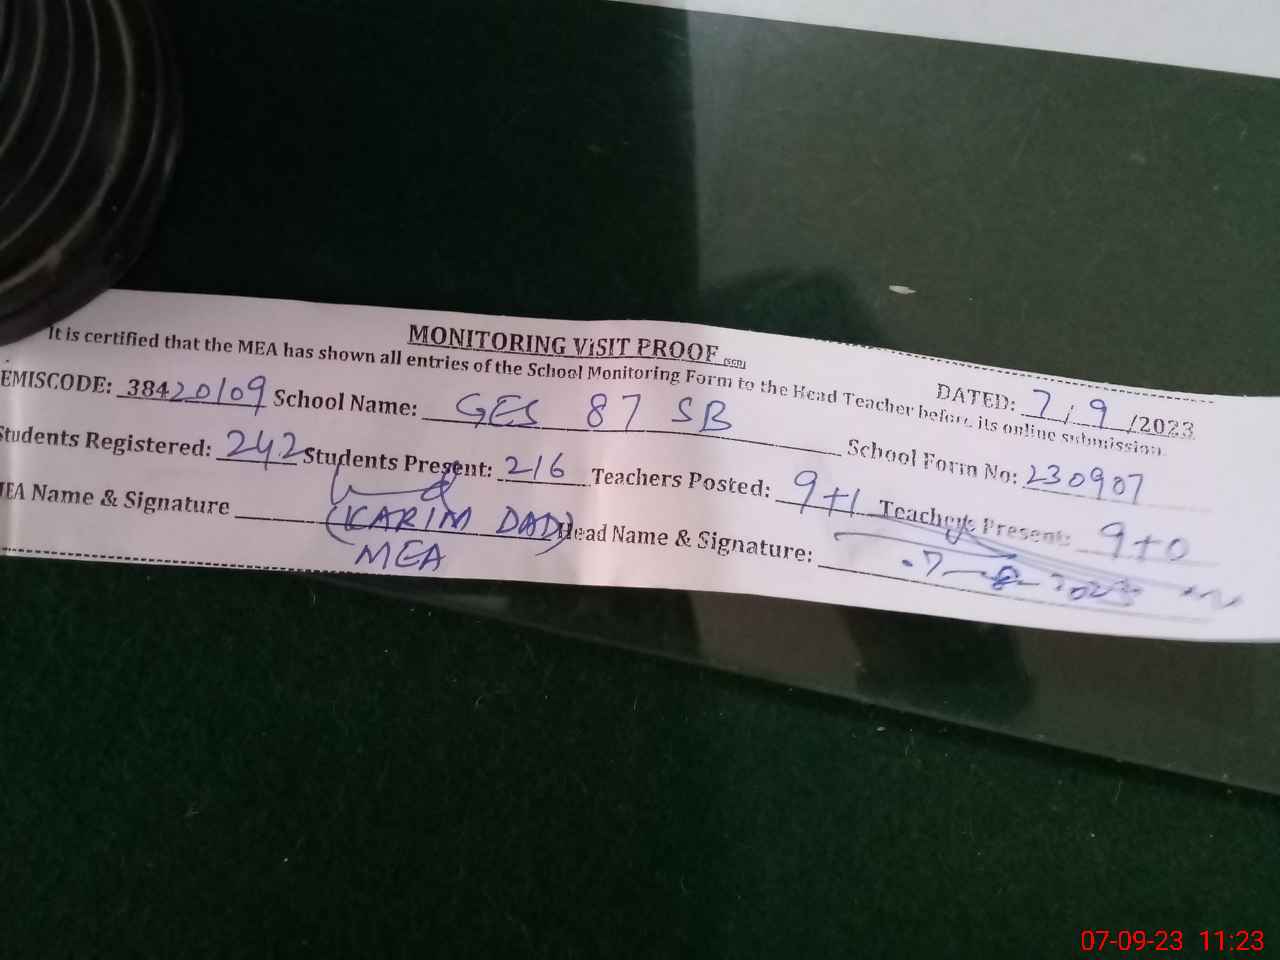 MONITORING VISIT PROOF (SED)
DATED: 7/9/2023
It is certified that the MEA has shown all entries of the School Monitoring Form to the Head Teacher before its online submission.
EMISCODE: 38420109 School Name: GES 87 SB School Form No: 230907
Students Registered: 242 Students Present: 216 Teachers Posted: 9+1 Teachers Present: 9+0
MEA Name & Signature (KARIM DAD) Head Name & Signature:
MEA
07-09-23 11:23